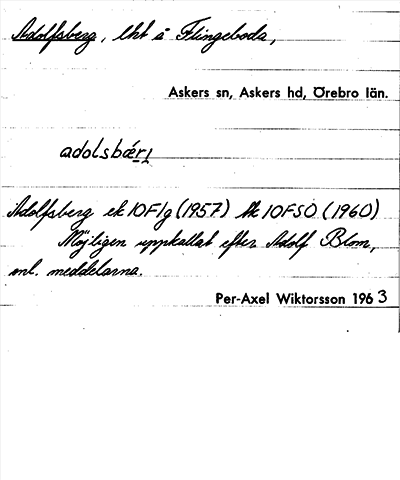 Adolfsberg, lht å Flingeboda,
Askers sn, Askers hd, Örebro län.
adolsbær̲ı̲
Adolfsberg ek 10F1g (1957) Ak 10FSO (1960)
Möjligen uppkallat efter Adolf Blom,
enl. meddelarna.
Per-Axel Wiktorsson 1963